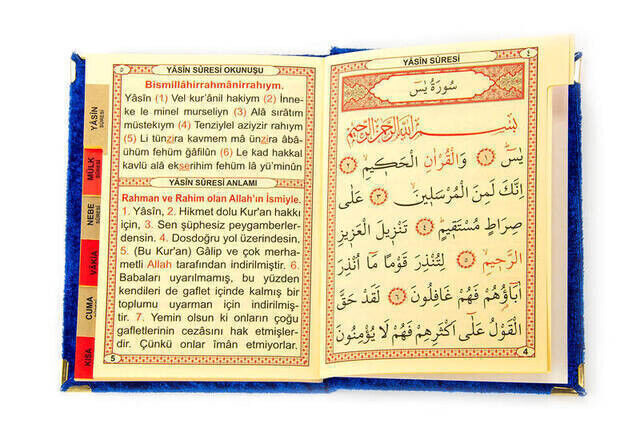 YÂSÎN SÛRESİ OKUNUŞU
٥
Bismillâhirrahmânirrahıym.
Yâsîn (1) Vel kur'ânil hakiym (2) İnne-
ke le minel murseliyn (3) Alâ sırâtım
müstekıym (4) Tenziylel aziyzir rahıym
(5) Li tünzira kavmem mâ ünzira âbâ-
ühüm fehüm ğâfilûn (6) Le kad hakkal
kavlü alâ ekserihim fehüm lâ yü'minûn
YÂSÎN SÛRESİ ANLAMI
Rahman ve Rahim olan Allah'ın ismiyle.
1. Yâsîn, 2. Hikmet dolu Kur'an hakkı
için, 3. Sen şüphesiz peygamberler-
densin. 4. Dosdoğru yol üzerindesin.
5. (Bu Kur'an) Gâlip ve çok merha-
metli Allah tarafından indirilmiştir. 6.
Babaları uyarılmamış, bu yüzden
kendileri de gaflet içinde kalmış bir
toplumu uyarman için indirilmiş-
tir. 7. Yemin olsun ki onların çoğu
gafletlerinin cezasını hak etmişler-
dir. Çünkü onlar îmân etmiyorlar.
5
YÂSÎN
SÛRESİ
MÜLK
SÛRESİ
NEBE
SÛRESİ
VÂKIA
CUMA
KISA
YÂSÎN SÛRESİ
٤
سُورَةُ يٰسٓ
بِسْمِ اللّٰهِ الرَّحْمٰنِ الرَّحِيمِ
يٰسٓ ﴿١﴾ وَالْقُرْاٰنِ الْحَكِيمِ ﴿٢﴾
اِنَّكَ لَمِنَ الْمُرْسَلِينَ ﴿٣﴾ عَلٰى
صِرَاطٍ مُسْتَقِيمٍ ﴿٤﴾ تَنْزِيلَ الْعَزِيزِ
الرَّحِيمِ ﴿٥﴾ لِتُنْذِرَ قَوْمًا مَٓا اُنْذِرَ
اٰبَٓاؤُ۬هُمْ فَهُمْ غَافِلُونَ ﴿٦﴾ لَقَدْ حَقَّ
الْقَوْلُ عَلٰٓى اَكْثَرِهِمْ فَهُمْ لَا يُؤْمِنُونَ
4